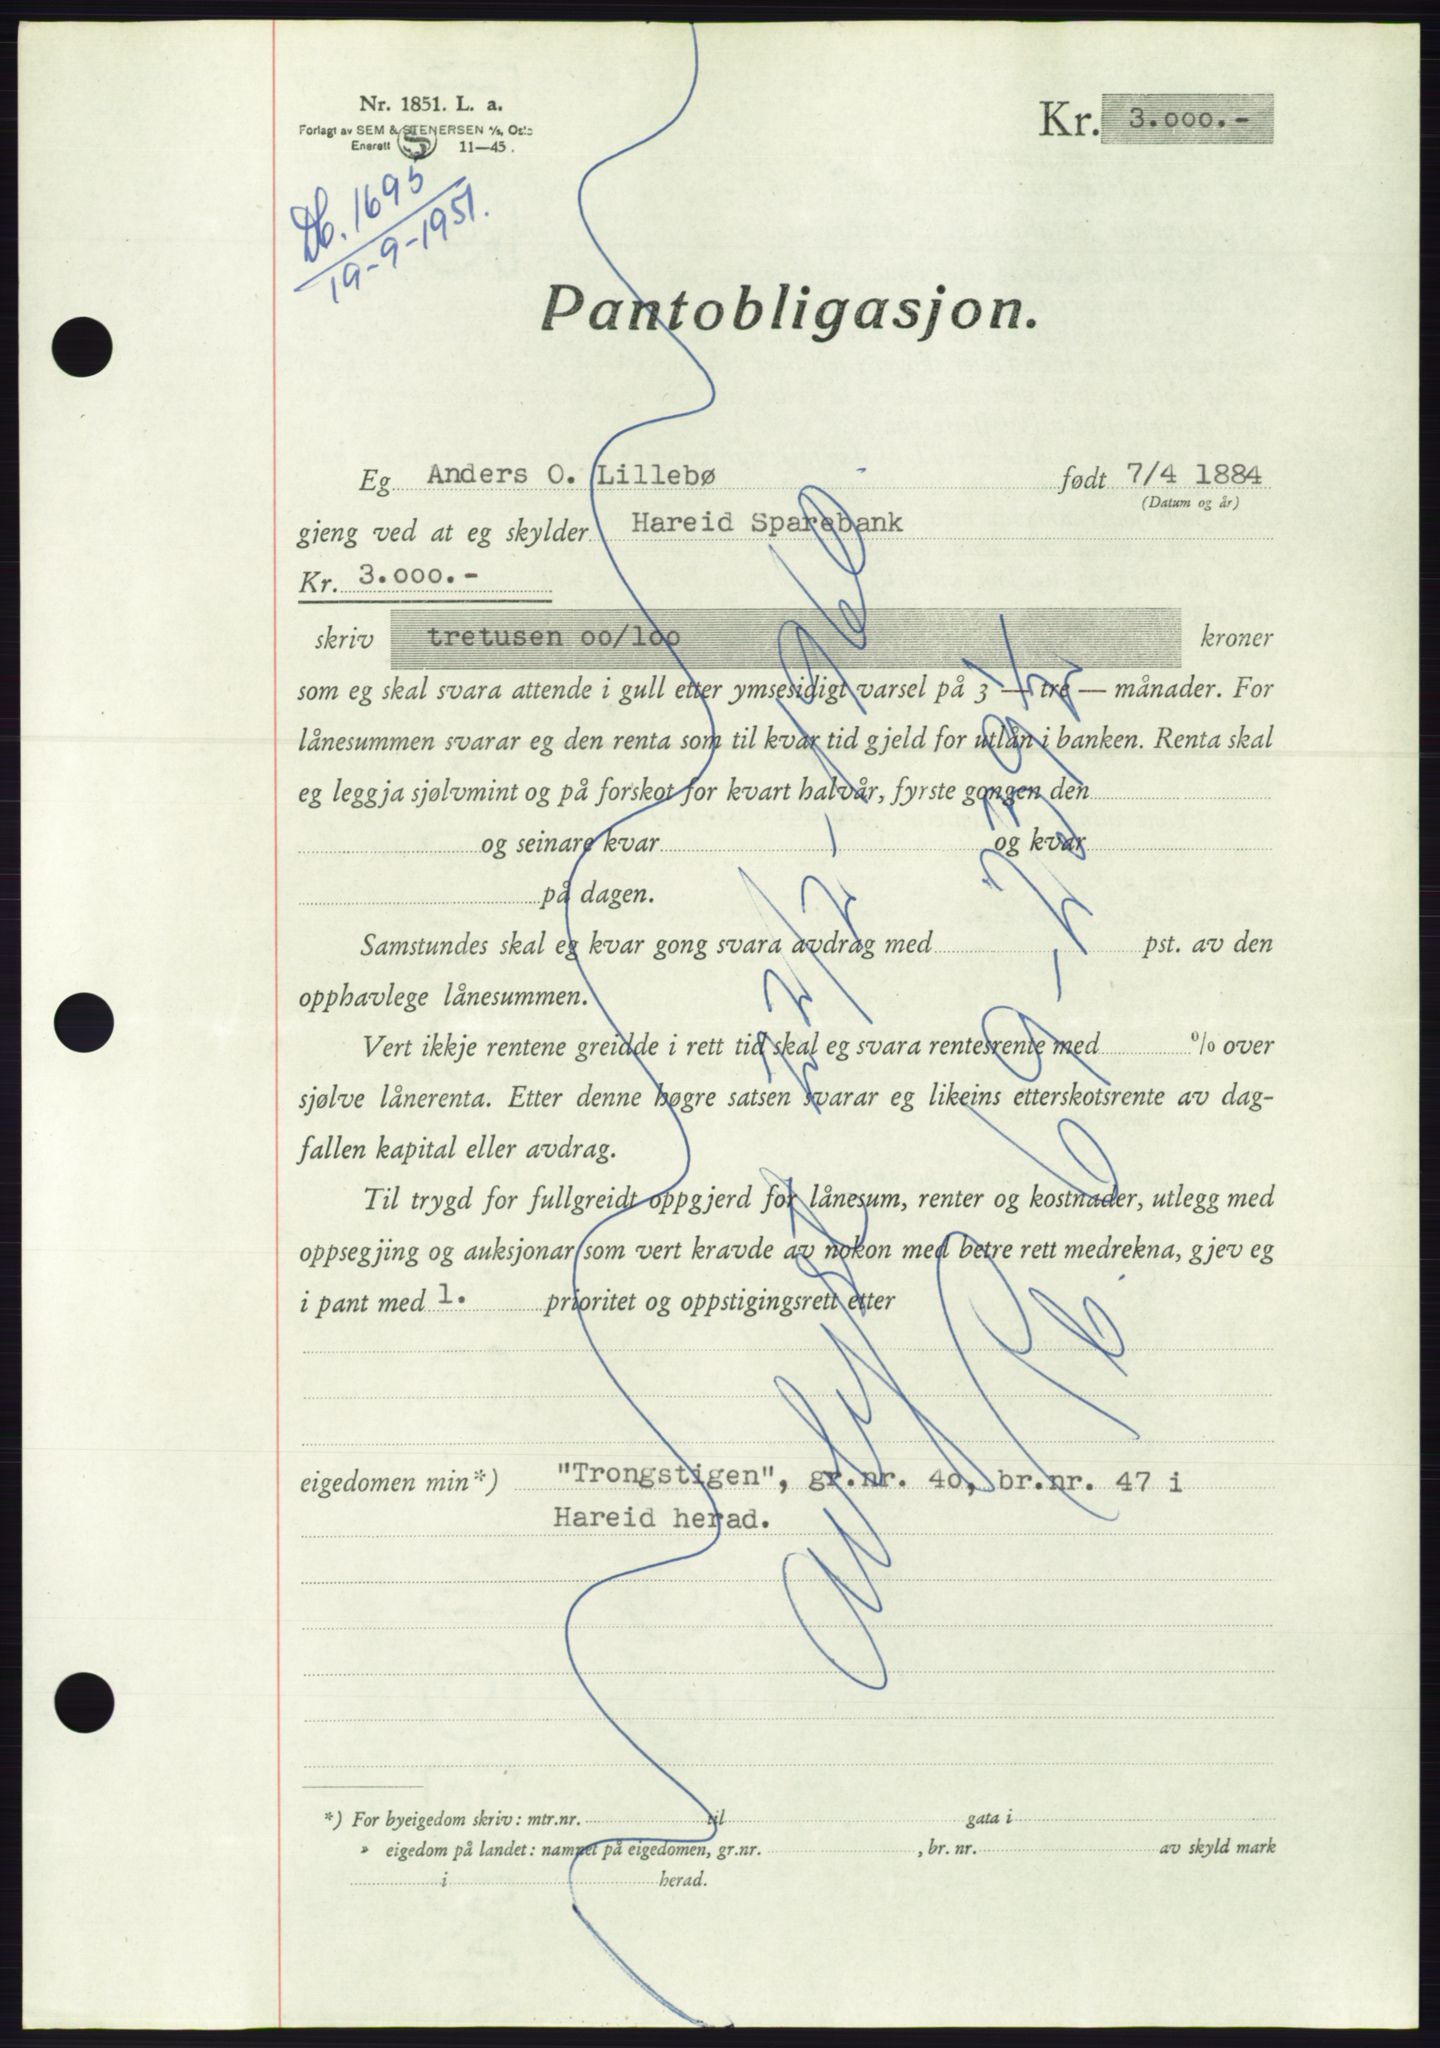 Nr. 1851. L. a.
Forlagt av SEM & STENERSEN A/S, Oslo
Enerett S 11—45.
Kr. 3.000.-
Db. 1695
19-9-1951.
Pantobligasjon.
Eg Anders O. Lillebø født 7/4 1884
(Datum og år)
gjeng ved at eg skylder Hareid Sparebank
Kr. 3.000.-
skriv tretusen oo/loo kroner
som eg skal svara attende i gull etter ymsesidigt varsel på 3 — tre — månader. For
lånesummen svarar eg den renta som til kvar tid gjeld for utlån i banken. Renta skal
eg leggja sjølvmint og på forskot for kvart halvår, fyrste gongen den
og seinare kvar og kvar
på dagen.
Samstundes skal eg kvar gong svara avdrag med pst. av den
opphavlege lånesummen.
Vert ikkje rentene greidde i rett tid skal eg svara rentesrente med % over
sjølve lånerenta. Etter denne høgre satsen svarar eg likeins etterskotsrente av dag-
fallen kapital eller avdrag.
Til trygd for fullgreidt oppgjerd for lånesum, renter og kostnader, utlegg med
oppsegjing og auksjonar som vert kravde av nokon med betre rett medrekna, gjev eg
i pant med 1. prioritet og oppstigingsrett etter
eigedomen min*) "Trongstigen", gr.nr. 40, br.nr. 47 i
Hareid herad.
*) For byeigedom skriv: mtr.nr. til gata i
» eigedom på landet: namnet på eigedomen, gr.nr. , br. nr. av skyld mark
i herad.